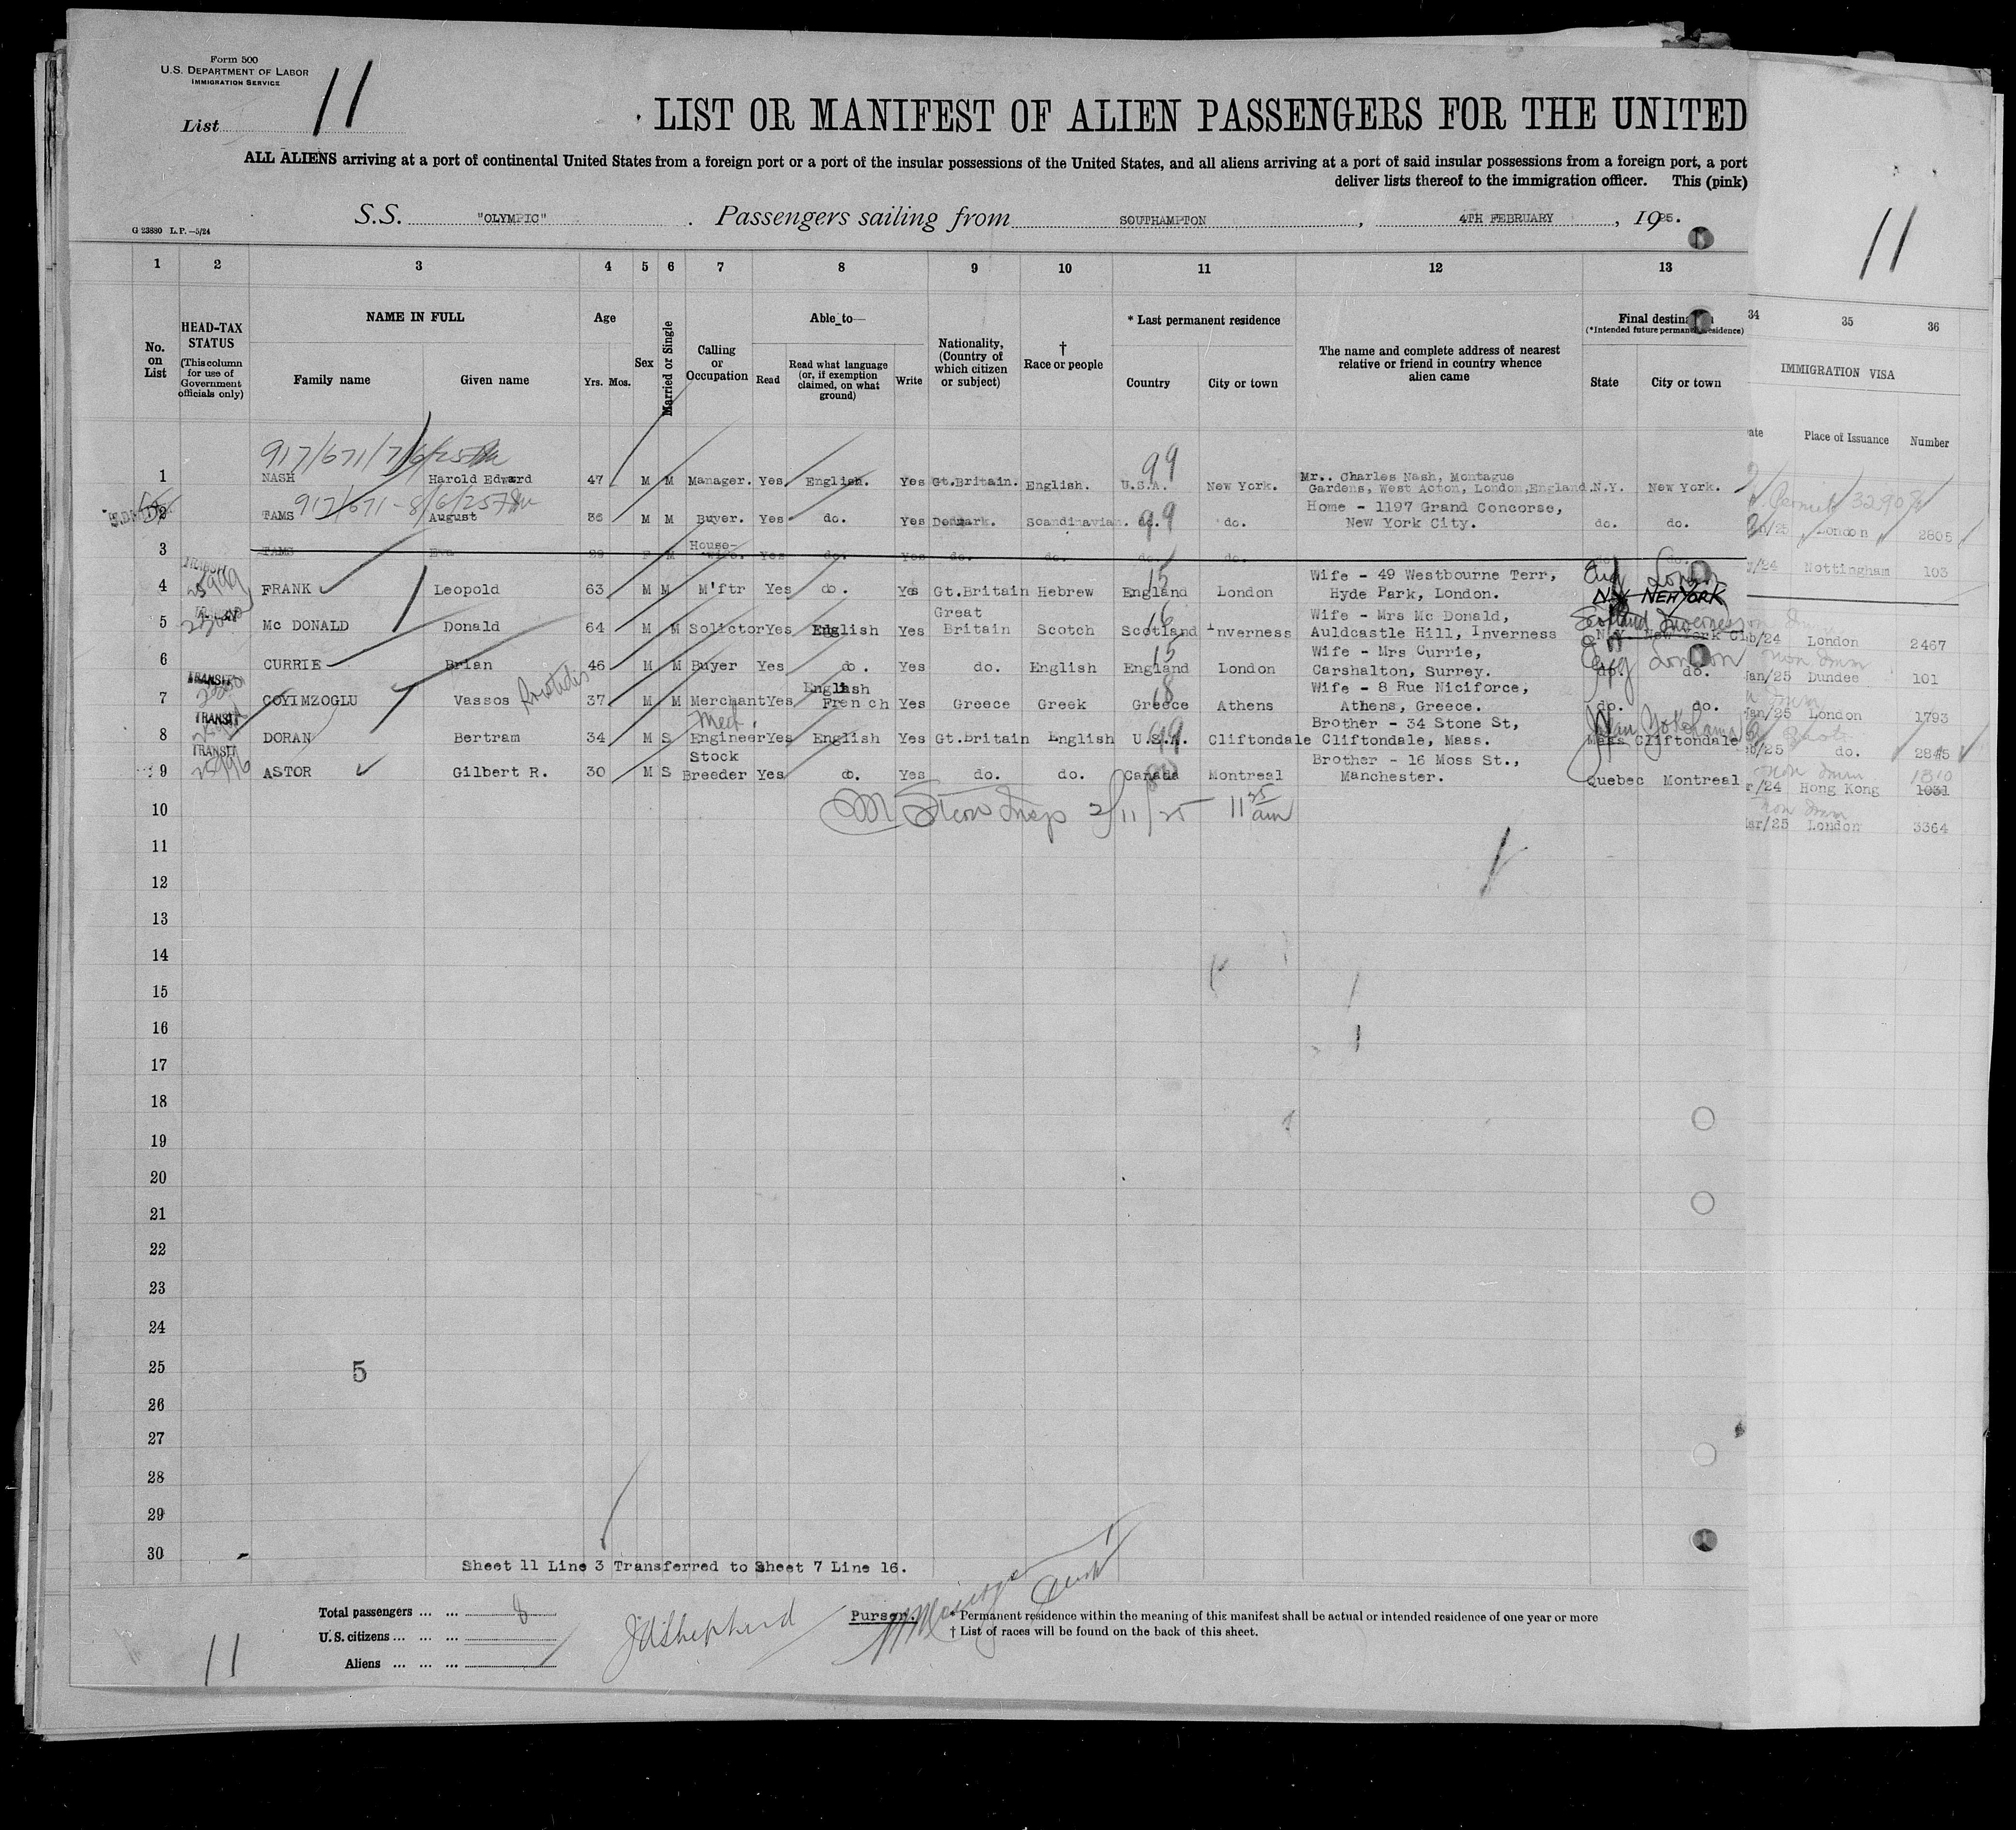 Form 500
U.S. DEPARTMENT OF LABOR
IMMIGRATION SERVICE
List 11
LIST OR MANIFEST OF ALIEN PASSENGERS FOR THE UNITED
ALL ALIENS arriving at a port of continental United States from a foreign port or a port of the insular possessions of the United States, and all aliens arriving at a port of said insular possessions from a foreign port, a port
deliver lists thereof to the immigration officer. This (pink)
11
S.S. "OLYMPIC" . Passengers sailing from SOUTHAMPTON , 4TH FEBRUARY , 1925.
G 23880 L.P.—5/24
1 2 3 4 5 6 7 8 9 10 11 12 13
34 35 36
No. on List
HEAD-TAX STATUS
(This column for use of Government officials only)
NAME IN FULL
Family name Given name
Age
Yrs. Mos.
Sex
Married or Single
Calling or Occupation
Able to—
Read
Read what language (or, if exemption claimed, on what ground)
Write
Nationality, (Country of which citizen or subject)
† Race or people
* Last permanent residence
Country City or town
The name and complete address of nearest relative or friend in country whence alien came
Final destina
(*Intended future permanent residence)
State City or town
IMMIGRATION VISA
ate Place of Issuance Number
917/671/7/6/25
1 NASH Harold Edward 47 M M Manager. Yes English. Yes Gt.Britain. English. U.S.A. 99 New York. Mr.. Charles Nash, Montague Gardens, West Acton, London, England. N.Y. New York.
917/671-8/6/25
2 TAMS August 36 M M Buyer. Yes do. Yes Denmark. Scandinavian. do. 99 do. Home - 1197 Grand Concorse, New York City. do. do.
3 TAMS Eva 29 F M House-wife. Yes do. Yes do. do. do. do. do. do.
4 FRANK Leopold 63 M M M'ftr Yes do. Yes Gt.Britain Hebrew England 15 London Wife - 49 Westbourne Terr, Hyde Park, London. Eng London N.Y. NEW YORK
5 Mc DONALD Donald 64 M M Solictor Yes English Yes Great Britain Scotch Scotland 16 Inverness Wife - Mrs Mc Donald, Auldcastle Hill, Inverness Scotland Inverness N.Y. New York Ci
6 CURRIE Brian 46 M M Buyer Yes do. Yes do. English England 15 London Wife - Mrs Currie, Carshalton, Surrey. Eng London do. do.
TRANSIT
7 COYIMZOGLU Vassos Aristidis 37 M M Merchant Yes English French Yes Greece Greek Greece 18 Athens Wife - 8 Rue Niciforce, Athens, Greece. do. do.
TRANSIT
Japan Yokohama
8 DORAN Bertram 34 M S Mech. Engineer Yes English Yes Gt.Britain English U.S.A. 99 Cliftondale Brother - 34 Stone St, Cliftondale, Mass. Mass Cliftondale
TRANSIT
9 ASTOR Gilbert R. 30 M S Stock Breeder Yes do. Yes do. do. Canada Montreal Brother - 16 Moss St., Manchester. Quebec Montreal
Permit 32908
/25 London 2805
/24 Nottingham 103
b/24 London 2467
non imm
an/25 Dundee 101
an/25 London 1793
/25 do. 2845
non imm 1310
/24 Hong Kong 1031
non imm
ar/25 London 3364
Insp 2/11/25 11 25 am
10
11
12
13
14
15
16
17
18
19
20
21
22
23
24
25 5
26
27
28
29
30
Sheet 11 Line 3 Transferred to Sheet 7 Line 16.
Total passengers ... ... 8
U.S. citizens ... ... ...
Aliens ... ... ...
11
J W Shepherd
Purser.
* Permanent residence within the meaning of this manifest shall be actual or intended residence of one year or more
† List of races will be found on the back of this sheet.